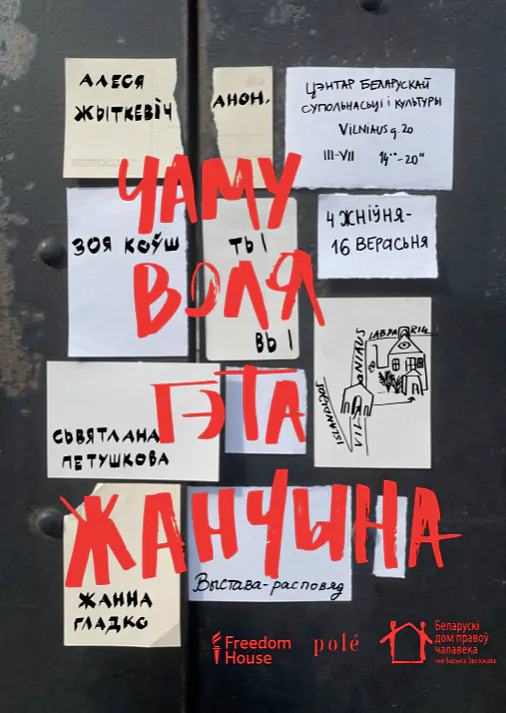 АЛЕСЯ
ЖЫТКЕВІЧ
АНОН.
ЦЭНТАР БЕЛАРУСКАЙ
СУПОЛЬНАСЬЦІ І КУЛЬТУРЫ
VILNIAUS g. 20
III-VII 14°°-20°°
ЧАМУ
ВОЛЯ
ГЭТА
ЖАНЧЫНА
ЗОЯ КОЎШ
ТЫ І
ВЫ І
4 ЖНІЎНЯ-
16 ВЕРАСЬНЯ
LABDARIŲ
VILNIAUS
ISLANDIJOS
СЬВЯТЛАНА
ПЕТУШКОВА
Выстава-расповяд
ЖАННА
ГЛАДКО
Freedom
House
polé
Беларускі
дом правоў
чалавека
імя Барыса Звозскава